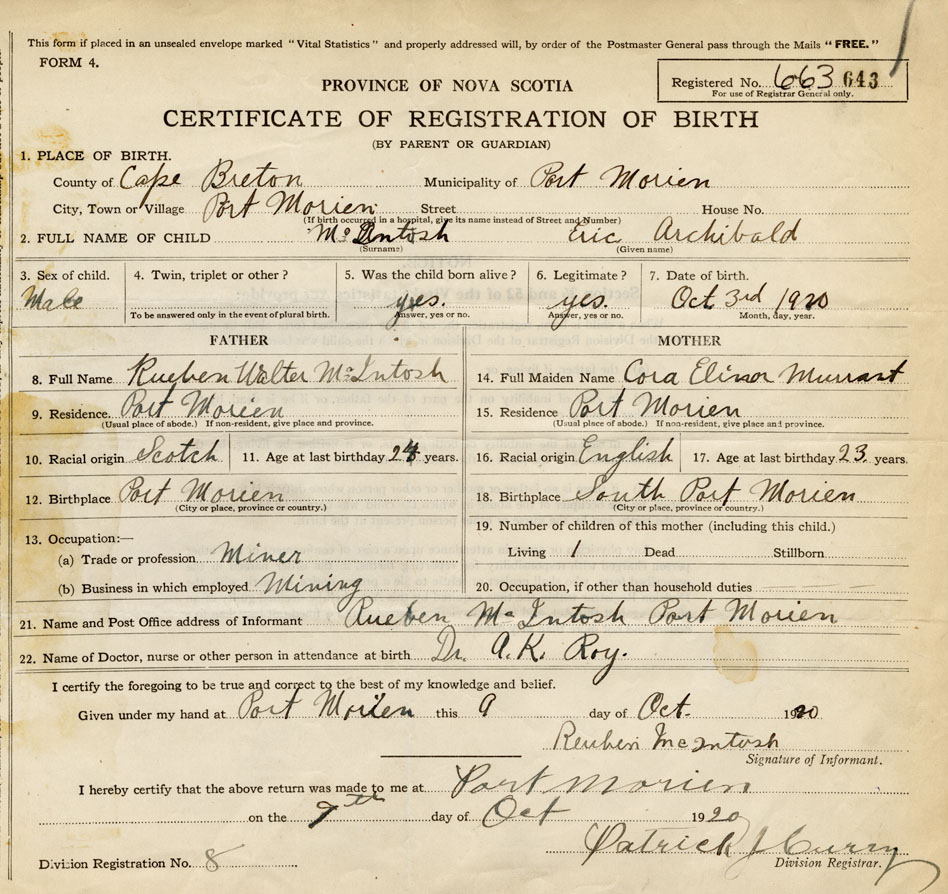 This form if placed in an unsealed envelope marked "Vital Statistics" and properly addressed will, by order of the Postmaster General pass through the Mails "FREE."
FORM 4.
Registered No. 663 643
For use of Registrar General only.
PROVINCE OF NOVA SCOTIA
CERTIFICATE OF REGISTRATION OF BIRTH
(BY PARENT OR GUARDIAN)
1. PLACE OF BIRTH.
County of Cape Breton Municipality of Port Morien
City, Town or Village Port Morien Street House No.
(If birth occurred in a hospital, give its name instead of Street and Number)
2. FULL NAME OF CHILD McIntosh Eric Archibald
(Surname) (Given name)
3. Sex of child. 4. Twin, triplet or other? 5. Was the child born alive? 6. Legitimate? 7. Date of birth.
Male yes. yes. Oct 3rd 1920
To be answered only in the event of plural birth. Answer, yes or no. Answer, yes or no. Month, day, year.
FATHER MOTHER
8. Full Name Rueben Walter McIntosh 14. Full Maiden Name Cora Elinor Murrant
9. Residence. Port Morien 15. Residence Port Morien
(Usual place of abode.) If non-resident, give place and province. (Usual place of abode.) If non-resident, give place and province.
10. Racial origin Scotch 11. Age at last birthday 24 years. 16. Racial origin English 17. Age at last birthday 23 years.
12. Birthplace Port Morien 18. Birthplace South Port Morien
(City or place, province or country.) (City or place, province or country.)
13. Occupation:— 19. Number of children of this mother (including this child.)
(a) Trade or profession Miner Living 1 Dead Stillborn
(b) Business in which employed Mining 20. Occupation, if other than household duties
21. Name and Post Office address of Informant Rueben McIntosh Port Morien
22. Name of Doctor, nurse or other person in attendance at birth Dr. A. K. Roy.
I certify the foregoing to be true and correct to the best of my knowledge and belief.
Given under my hand at Port Morien this 9 day of Oct. 1920
Reuben McIntosh
Signature of Informant.
I hereby certify that the above return was made to me at Port Morien
on the 9th day of Oct 1920
Patrick J Curry
Division Registration No. 8 Division Registrar.